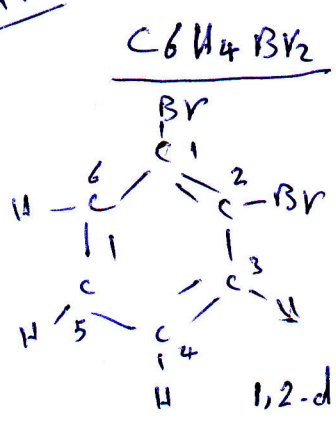 C6H4Br2
Br
C 1
6 2
H - C C - Br
C C 3
H 5 C 4 H
H 1,2-d